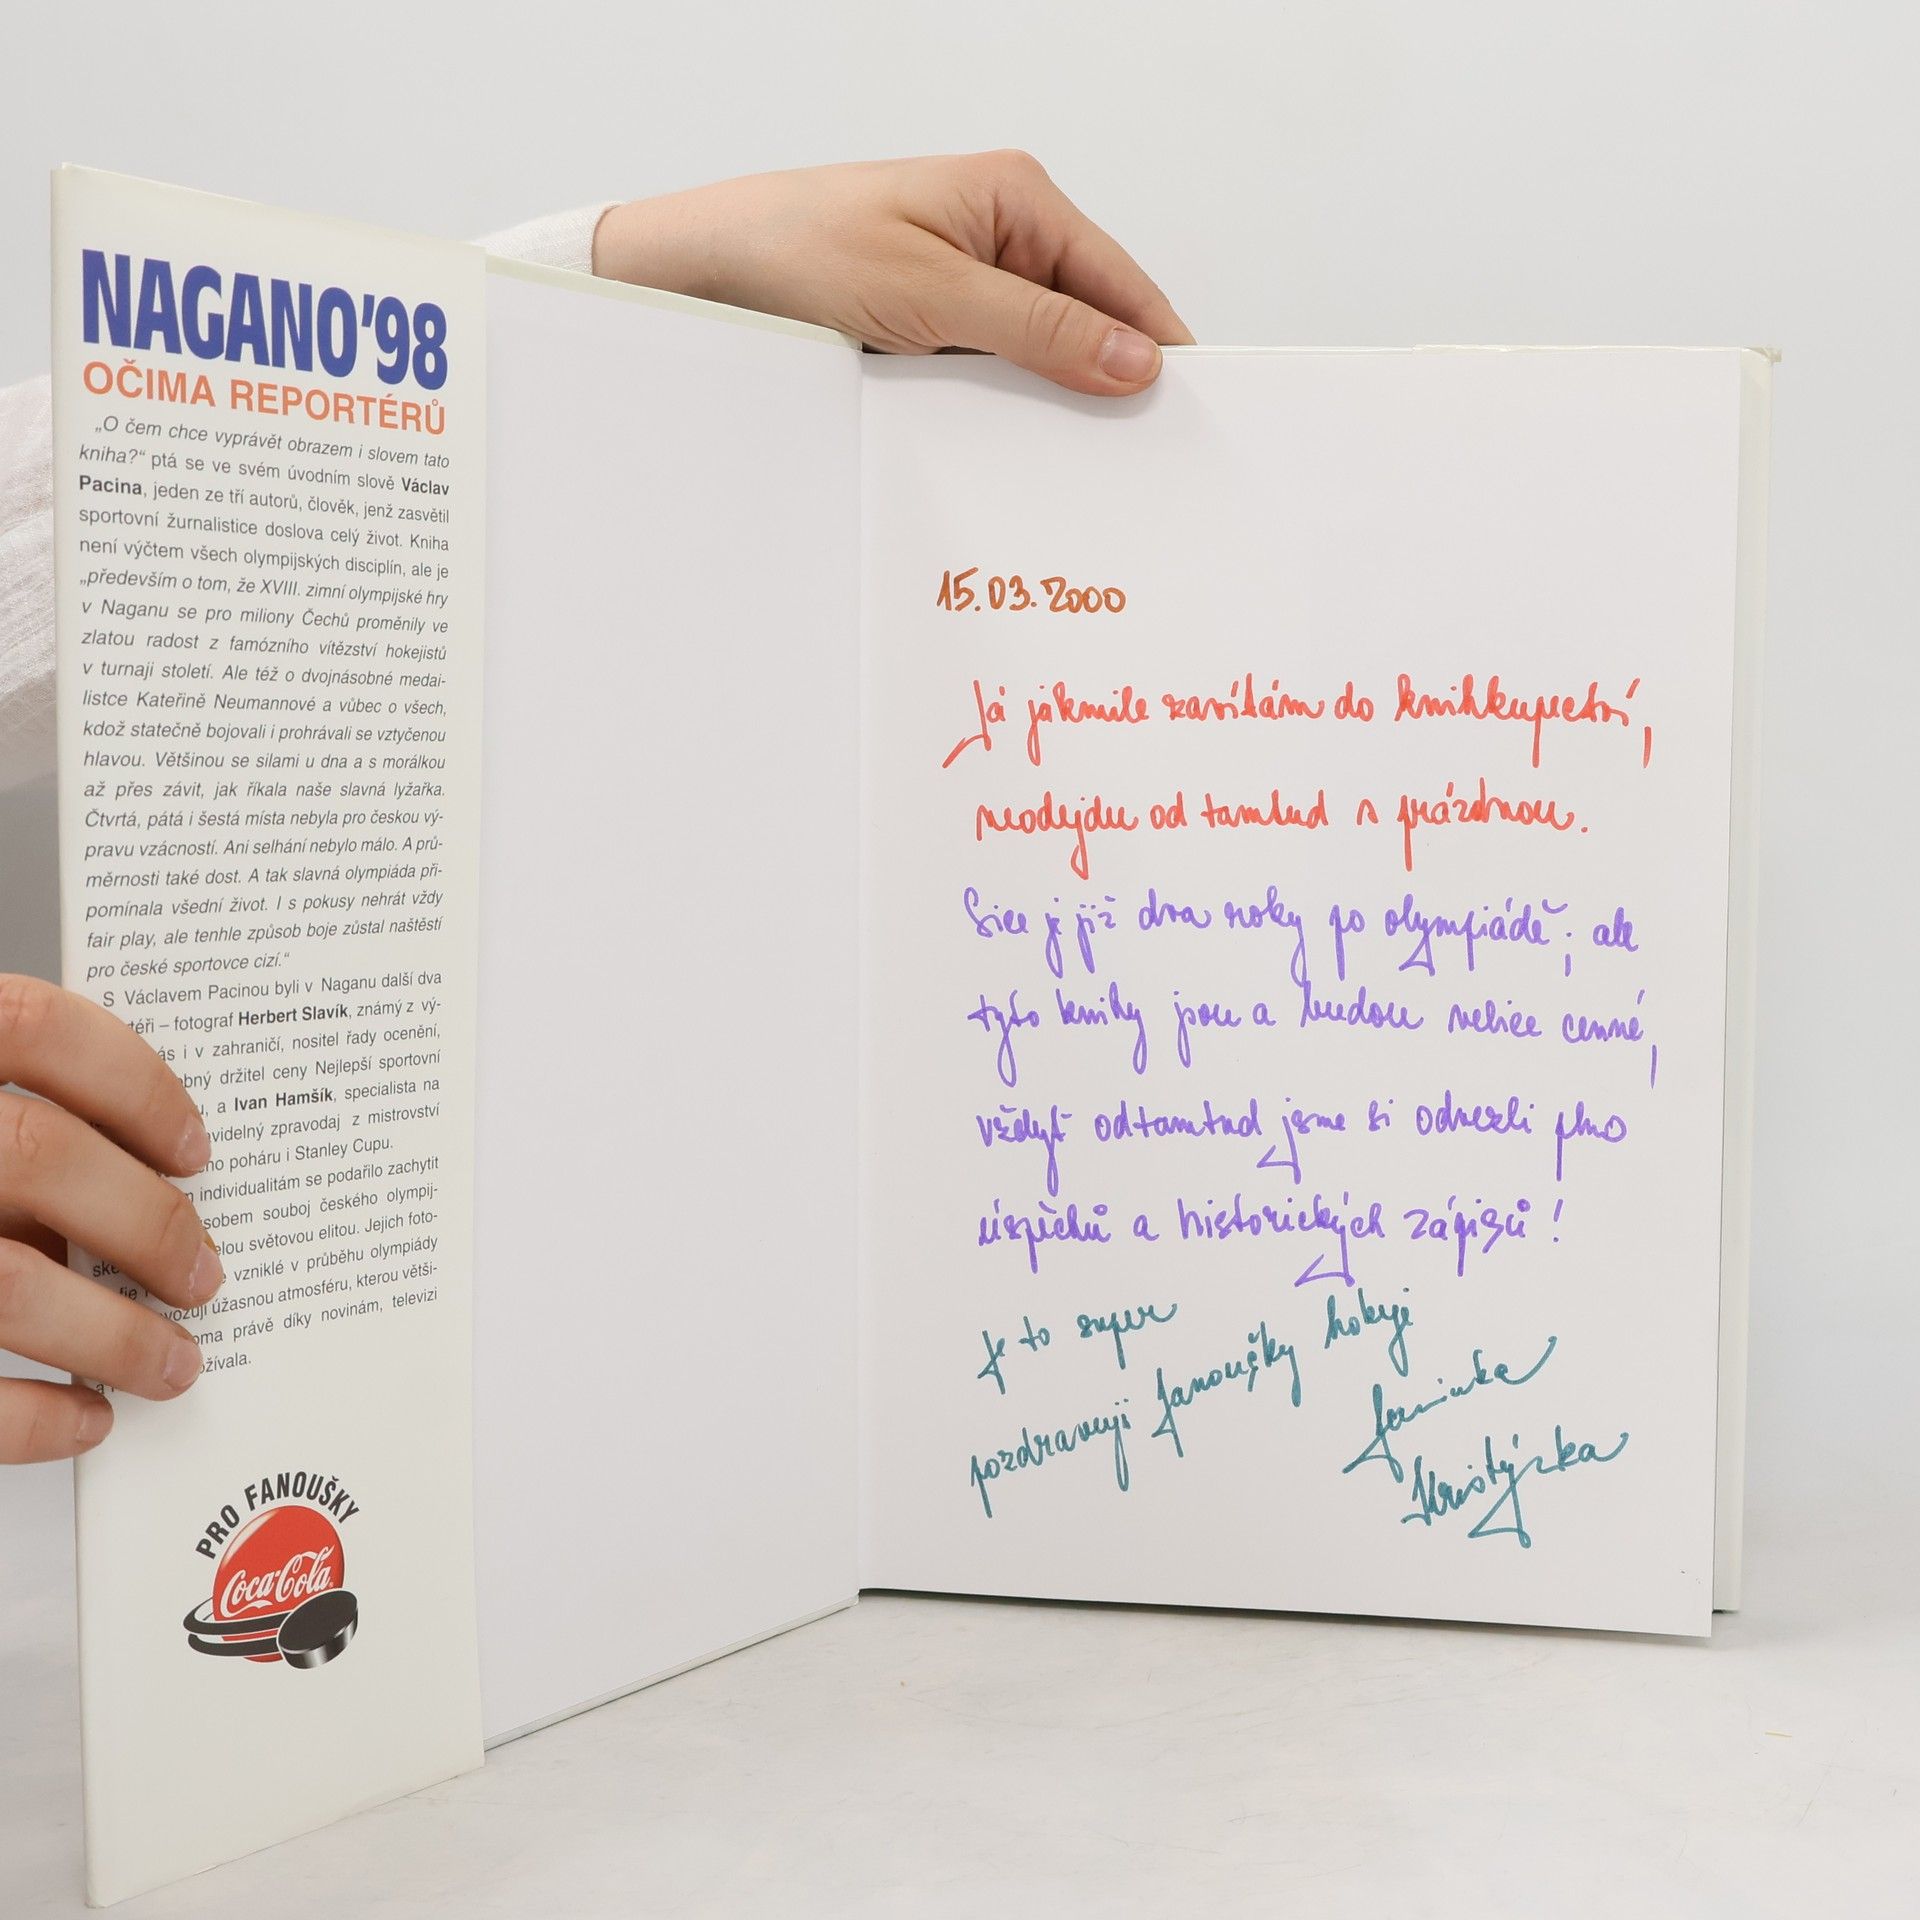 NAGANO'98
OČIMA REPORTÉRŮ
„O čem chce vyprávět obrazem i slovem tato
kniha?“ ptá se ve svém úvodním slově Václav
Pacina, jeden ze tří autorů, člověk, jenž zasvětil
sportovní žurnalistice doslova celý život. Kniha
není výčtem všech olympijských disciplín, ale je
„především o tom, že XVIII. zimní olympijské hry
v Naganu se pro miliony Čechů proměnily ve
zlatou radost z famózního vítězství hokejistů
v turnaji století. Ale též o dvojnásobné medai-
listce Kateřině Neumannové a vůbec o všech,
kdož statečně bojovali i prohrávali se vztyčenou
hlavou. Většinou se silami u dna a s morálkou
až přes závit, jak říkala naše slavná lyžařka.
Čtvrtá, pátá i šestá místa nebyla pro českou vý-
pravu vzácností. Ani selhání nebylo málo. A prů-
měrnosti také dost. A tak slavná olympiáda při-
pomínala všední život. I s pokusy nehrát vždy
fair play, ale tenhle způsob boje zůstal naštěstí
pro české sportovce cizí.“
S Václavem Pacinou byli v Naganu další dva
téři – fotograf Herbert Slavík, známý z vý-
ás i v zahraničí, nositel řady ocenění,
bný držitel ceny Nejlepší sportovní
u, a Ivan Hamšík, specialista na
videlný zpravodaj z mistrovství
ho poháru i Stanley Cupu.
individualitám se podařilo zachytit
sobem souboj českého olympij-
ske elou světovou elitou. Jejich foto-
fie vzniklé v průběhu olympiády
vozují úžasnou atmosféru, kterou větši-
oma právě díky novinám, televizi
a ožívala.
PRO FANOUŠKY
Coca-Cola
15.03.2000
Já jakmile zavítám do knihkupectví,
neodejdu od tamtud s prázdnou.
Sice je již dva roky po olympiádě; ale
tyto knihy jsou a budou velice cenné,
vždyť odtamtud jsme si odvezli plno
úspěchů a historických zápisů!
Je to super
pozdravují fanoušky hokeje
Kristýnka